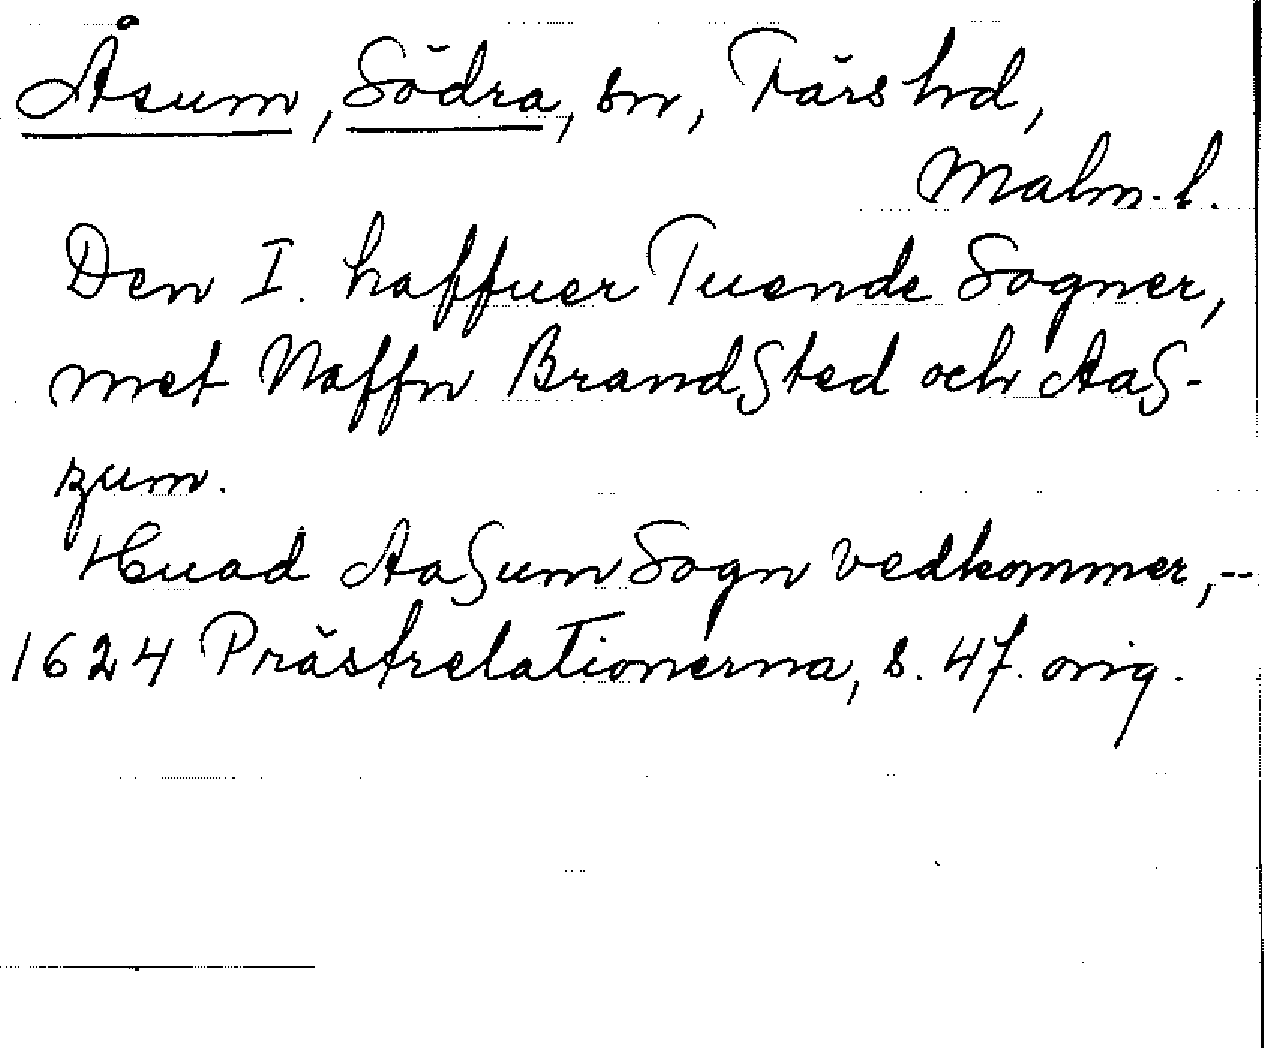 Åsum, Södra, sn, Färs hd,
Malm. l.
Den I. haffuer Tuende Sogner,
met Naffn Brandßted och Aaß-
zum.
Huad Aaßum Sogn vedkommer,--
1624 Prästrelationerna, s. 47. orig.